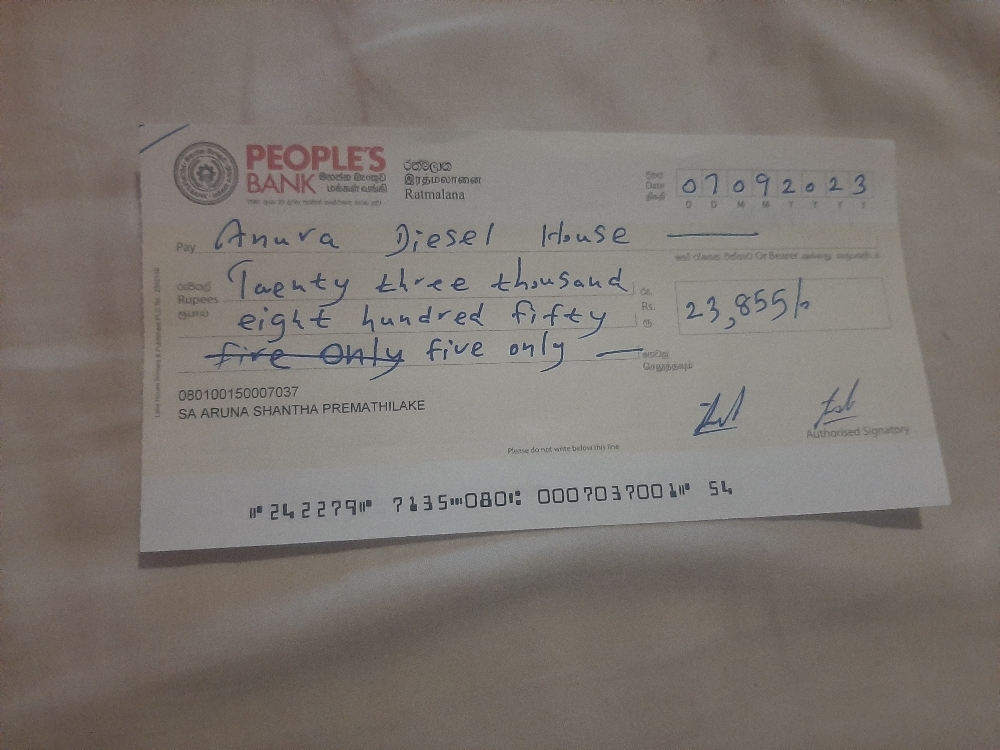 PEOPLE'S
BANK මහජන බැංකුව
மக்கள் வங்கி
රත්මලාන
இரத்மலானை
Ratmalana
Date 07092023
D D M M Y Y Y Y
Pay Anura Diesel House
Or Bearer
Rupees Twenty three thousand
Rs. 23,855/-
ரூபாய் eight hundred fifty
ரூ.
five Only five only
080100150007037
SA ARUNA SHANTHA PREMATHILAKE
Authorised Signatory
Please do not write below this line
⑈242279⑈ 7135⑉080⑆ 0007037001⑈ 54